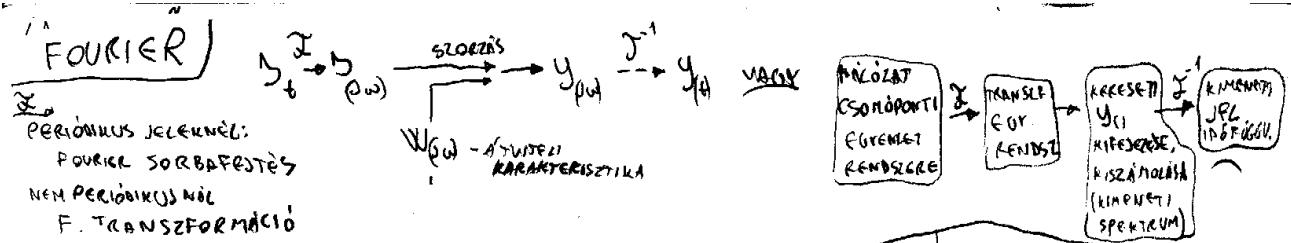 FOURIER
ℱ
PERIÓDIKUS JELEKNÉL:
FOURIER SORBAFEJTÉS
NEM PERIÓDIKUSNÁL
F. TRANSZFORMÁCIÓ
ℱ
SZORZÁS
y(jω) ℱ⁻¹ y(t)
W(jω) - ÁTVITELI
KARAKTERISZTIKA
VAGY
HÁLÓZAT
CSOMÓPONTI
EGYENLET
RENDSZERE
ℱ
TRANSZF
EGY.
RENDSZ
KERESETT
y()
KIFEJEZÉSE,
KISZÁMOLÁSA
(KIMENETI
SPEKTRUM)
ℱ⁻¹
KIMENETI
JEL
IDŐFÜGGV.